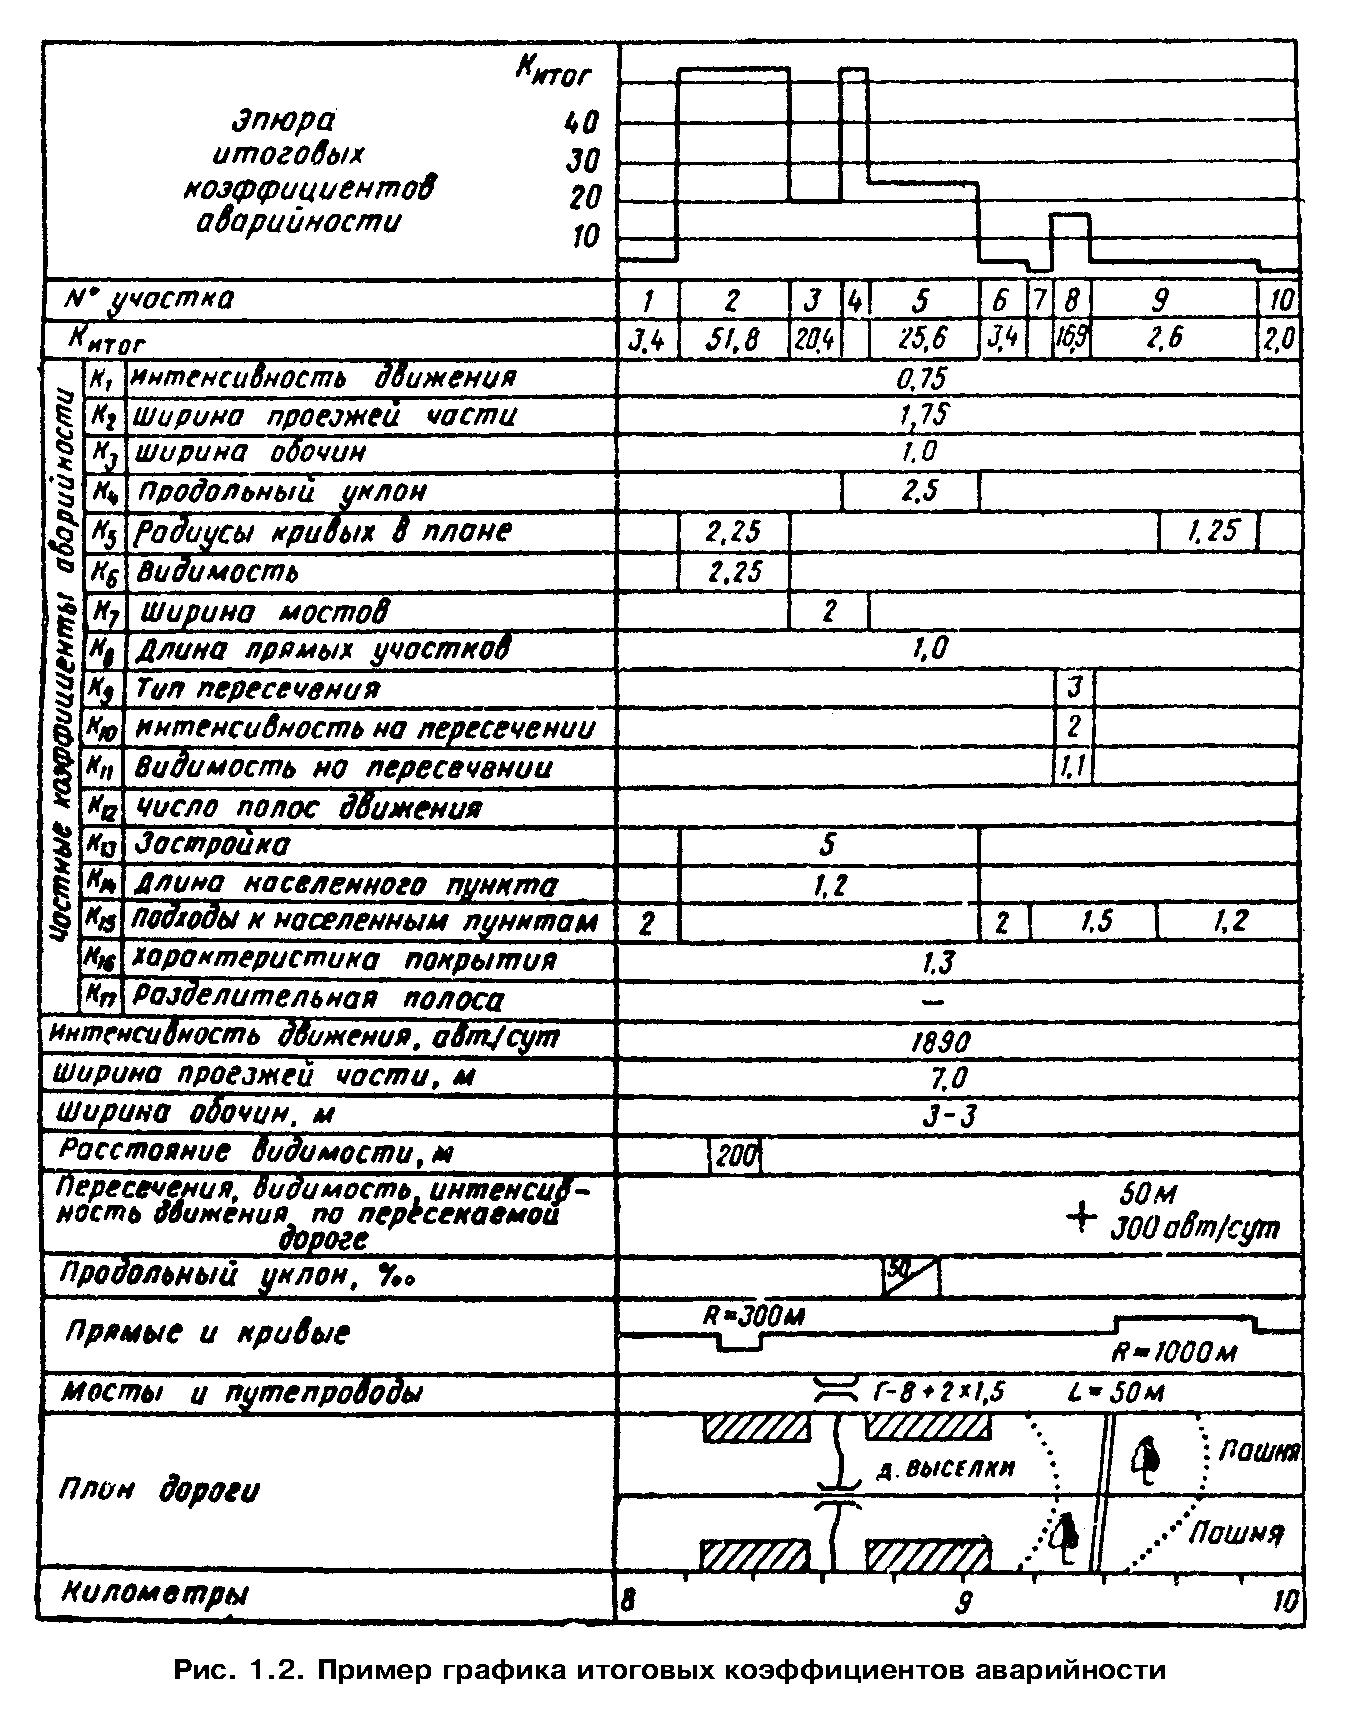 Kитог
Эпюра
итоговых
коэффициентов
аварийности
40
30
20
10
N° участка 1 2 3 4 5 6 7 8 9 10
Kитог 3,4 51,8 20,4 25,6 3,4 16,9 2,6 2,0
Частные коэффициенты аварийности
K1 интенсивность движения 0,75
K2 ширина проезжей части 1,75
K3 ширина обочин 1,0
K4 Продольный уклон 2,5
K5 Радиусы кривых в плане 2,25 1,25
K6 Видимость 2,25
K7 Ширина мостов 2
K8 Длина прямых участков 1,0
K9 Тип пересечения 3
K10 интенсивность на пересечении 2
K11 Видимость на пересечении 1,1
K12 число полос движения
K13 Застройка 5
K14 Длина населенного пункта 1,2
K15 Подходы к населенным пунктам 2 2 1,5 1,2
K16 характеристика покрытия 1,3
K17 Разделительная полоса –
интенсивность движения, авт/сут 1890
ширина проезжей части, м 7,0
ширина обочин, м 3-3
Расстояние видимости, м 200
Пересечения, видимость, интенсив-
ность движения по пересекаемой
дороге
50м
300 авт/сут
Продольный уклон, ‰ 50
Прямые и кривые R=300м R=1000м
Мосты и путепроводы Г-8+2×1,5 L=50м
План дороги
д. ВЫСЕЛКИ
Пашня
Пашня
Километры 8 9 10
Рис. 1.2. Пример графика итоговых коэффициентов аварийности